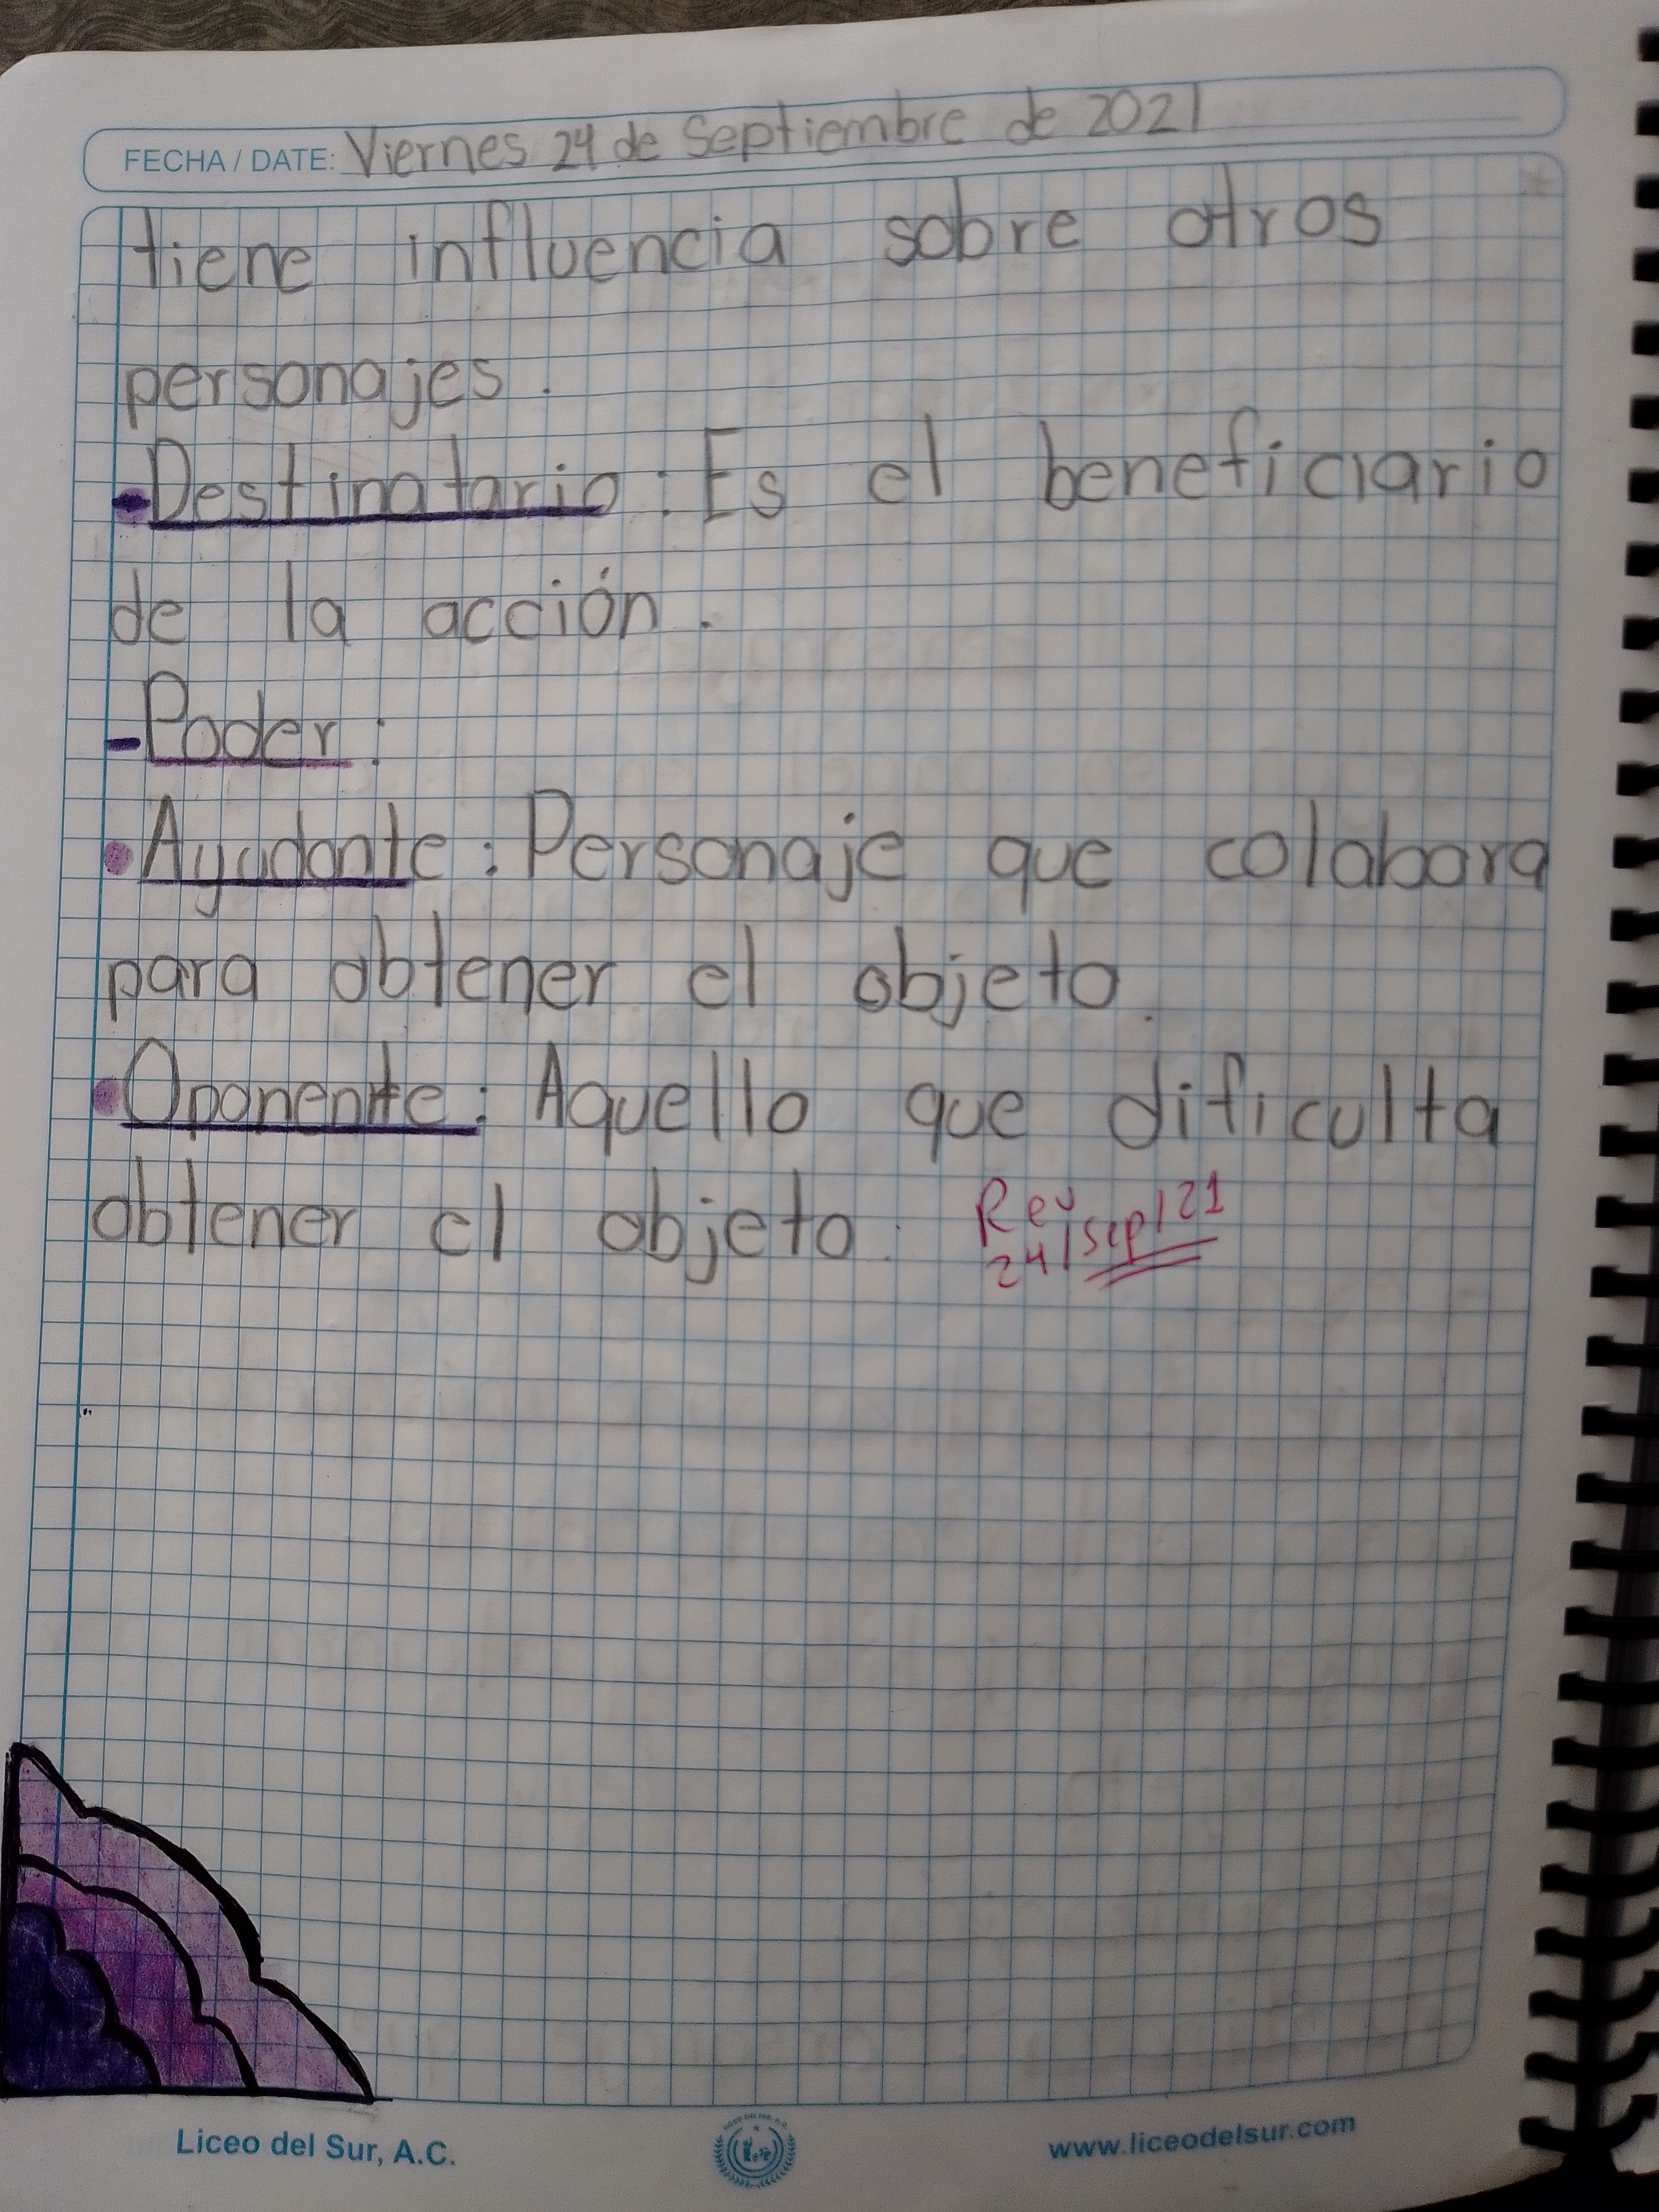 FECHA / DATE: Viernes 24 de Septiembre de 2021
tiene influencia sobre otros
personajes.
•Destinatario: Es el beneficiario
de la acción.
-Poder:
•Ayudante: Personaje que colabora
para obtener el objeto.
•Oponente: Aquello que dificulta
obtener el objeto.
Rev
24/sep/21
Liceo del Sur, A.C.
www.liceodelsur.com